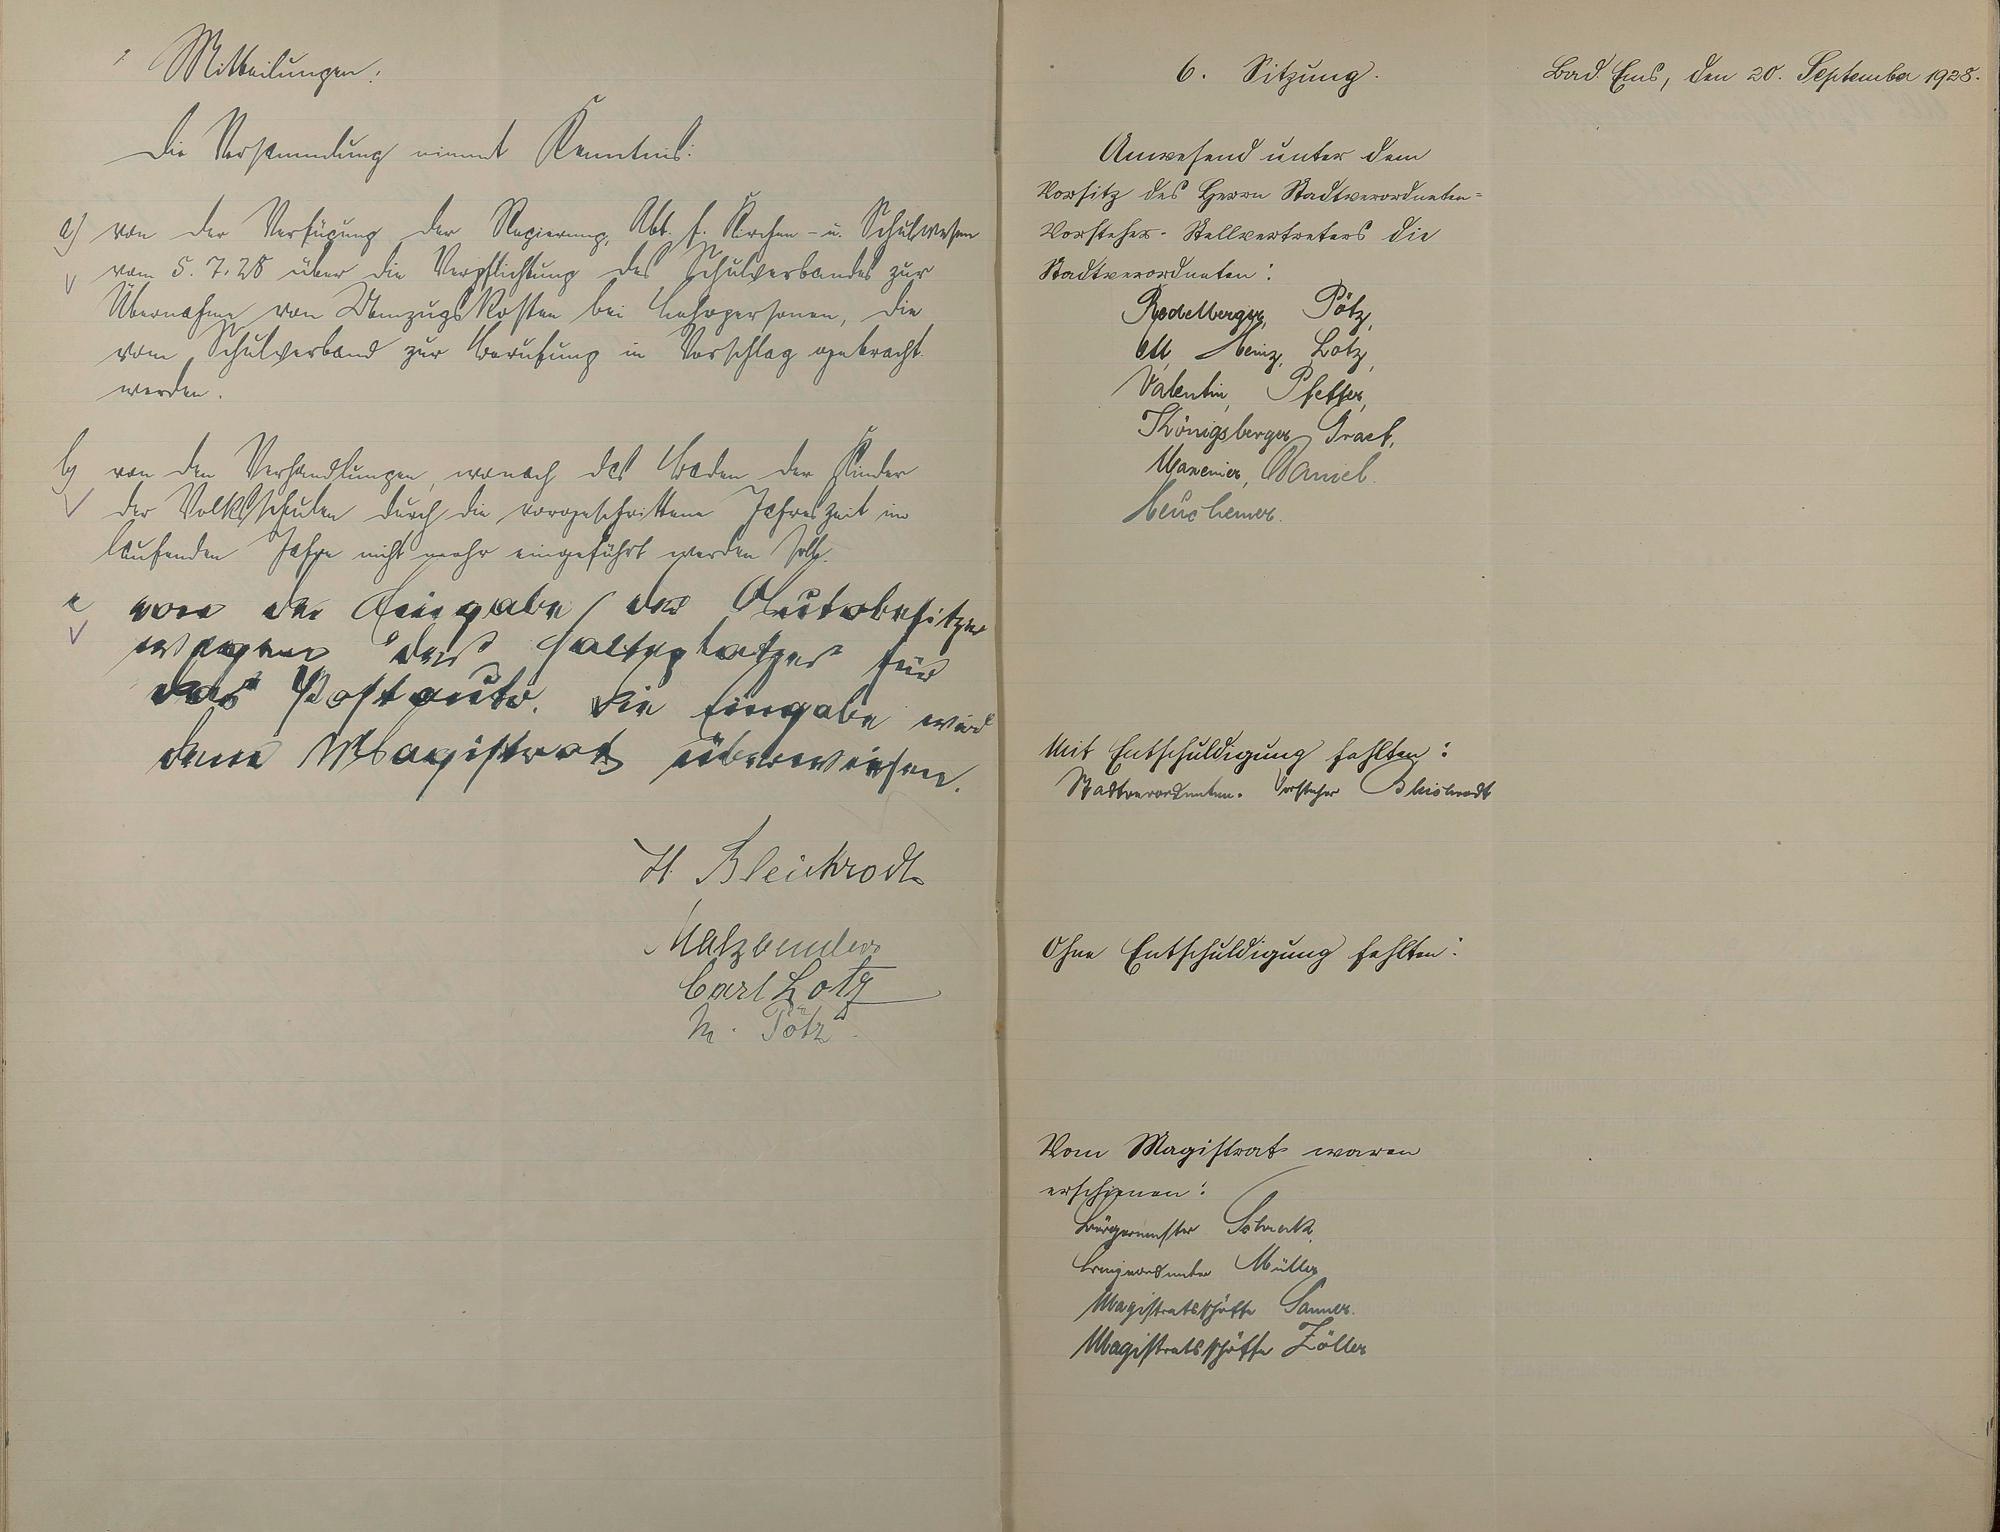 Mitteilungen:
Die Versammlung nimmt Kenntnis:
a) von der Verfügung der Regierung, Abt. f. Kirchen- u. Schulwesen
vom 5.7.28 über die Verpflichtung des Schulverbandes zur
Übernahme von Umzugskosten bei Lehrpersonen, die
vom Schulverband zur Berufung in Vorschlag gebracht
werden.
b) von den Verhandlungen, wonach das Baden der Kinder
der Volksschulen durch die vorgeschrittene Jahreszeit im
laufenden Jahre nicht mehr eingeführt werden soll.
c von der Eingabe der Autobesitzer
wegen des Halteplatzes für
das Postauto. Die Eingabe wird
dem Magistrat überwiesen.
H. Bleickrodt
Malzbender
Carl Lotz
M. Pötz
6. Sitzung. Bad Ems, den 20. September 1928.
Anwesend unter dem
Vorsitz des Herrn Stadtverordneten-
Vorsteher-Stellvertreters die
Stadtverordneten:
Pötz,
Ott, Heinz, Lotz,
Valentin, Pfeffer,
Königsberger, Graef,
Daniel.
Mit Entschuldigung fehlten:
Stadtverordneten-Vorsteher Bleickrodt
Ohne Entschuldigung fehlten:
Vom Magistrat waren
erschienen:
Bürgermeister
Beigeordneter Müller
Magistratsschöffe Sanner.
Magistratsschöffe Zöller